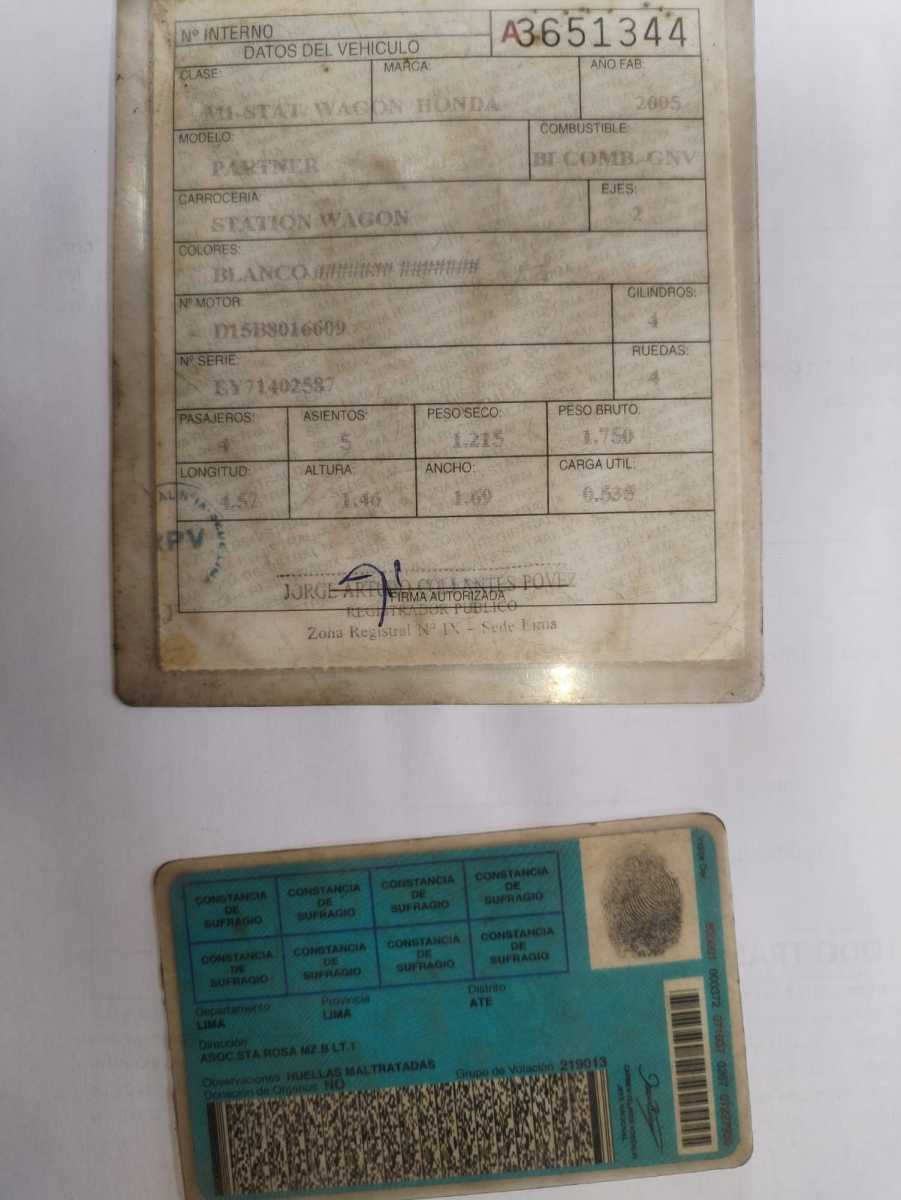 Nº INTERNO A3651344
DATOS DEL VEHICULO
CLASE: MARCA: AÑO FAB:
M1-STAT. WAGON HONDA 2005
MODELO: COMBUSTIBLE:
PARTNER BI COMB. GNV
CARROCERIA: EJES:
STATION WAGON 2
COLORES:
BLANCO ####### #######
Nº MOTOR: CILINDROS:
D15B8016609 4
Nº SERIE: RUEDAS:
EY71402587 4
PASAJEROS: ASIENTOS: PESO SECO: PESO BRUTO:
4 5 1.215 1.750
LONGITUD: ALTURA: ANCHO: CARGA UTIL:
4.57 1.46 1.69 0.535
RPV
JORGE ARTURO COLLANTES POVEZ
FIRMA AUTORIZADA
REGISTRADOR PUBLICO
Zona Registral Nº IX - Sede Lima
CONSTANCIA DE SUFRAGIO CONSTANCIA DE SUFRAGIO CONSTANCIA DE SUFRAGIO CONSTANCIA DE SUFRAGIO
CONSTANCIA DE SUFRAGIO CONSTANCIA DE SUFRAGIO CONSTANCIA DE SUFRAGIO CONSTANCIA DE SUFRAGIO
Departamento Provincia Distrito
LIMA LIMA ATE
Dirección
ASOC.STA.ROSA MZ.B LT.1
Observaciones HUELLAS MALTRATADAS Grupo de Votación 219013
Donación de Organos NO
JEFE NACIONAL
Indice Der